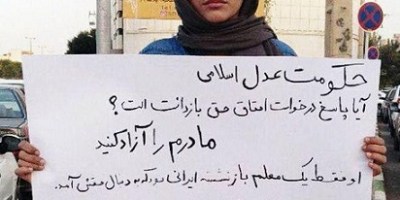 حکومت عدل اسلامی
آیا پاسخ درخواست احقاق حق بازداشت است؟
مادرم را آزاد کنید
او فقط یک معلم بازنشسته ایرانی بود که به دنبال حقش آمد.